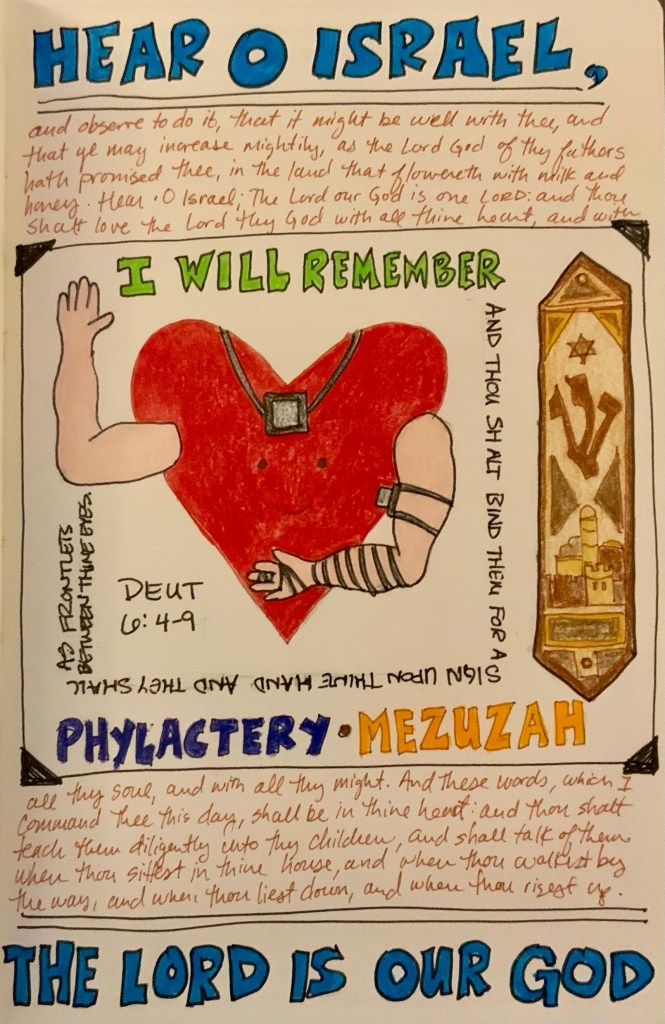 HEAR O ISRAEL,
and observe to do it, that it might be well with thee, and
that ye may increase mightily, as the Lord God of thy fathers
hath promised thee, in the land that flowereth with milk and
honey. Hear O Israel; The Lord our God is one LORD: and thou
shalt love the Lord thy God with all thine heart, and with
I WILL REMEMBER
AND THOU SHALT BIND THEM FOR A
SIGN UPON THINE HAND AND THEY SHALL
AS FRONTLETS
BETWEEN THINE EYES.
DEUT
6:4-9
ש
PHYLACTERY • MEZUZAH
all thy soul, and with all thy might. And these words, which I
command thee this day, shall be in thine heart: and thou shalt
teach them diligently unto thy children, and shall talk of them
when thou sittest in thine house, and when thou walkest by
the way, and when thou liest down, and when thou risest up.
THE LORD IS OUR GOD